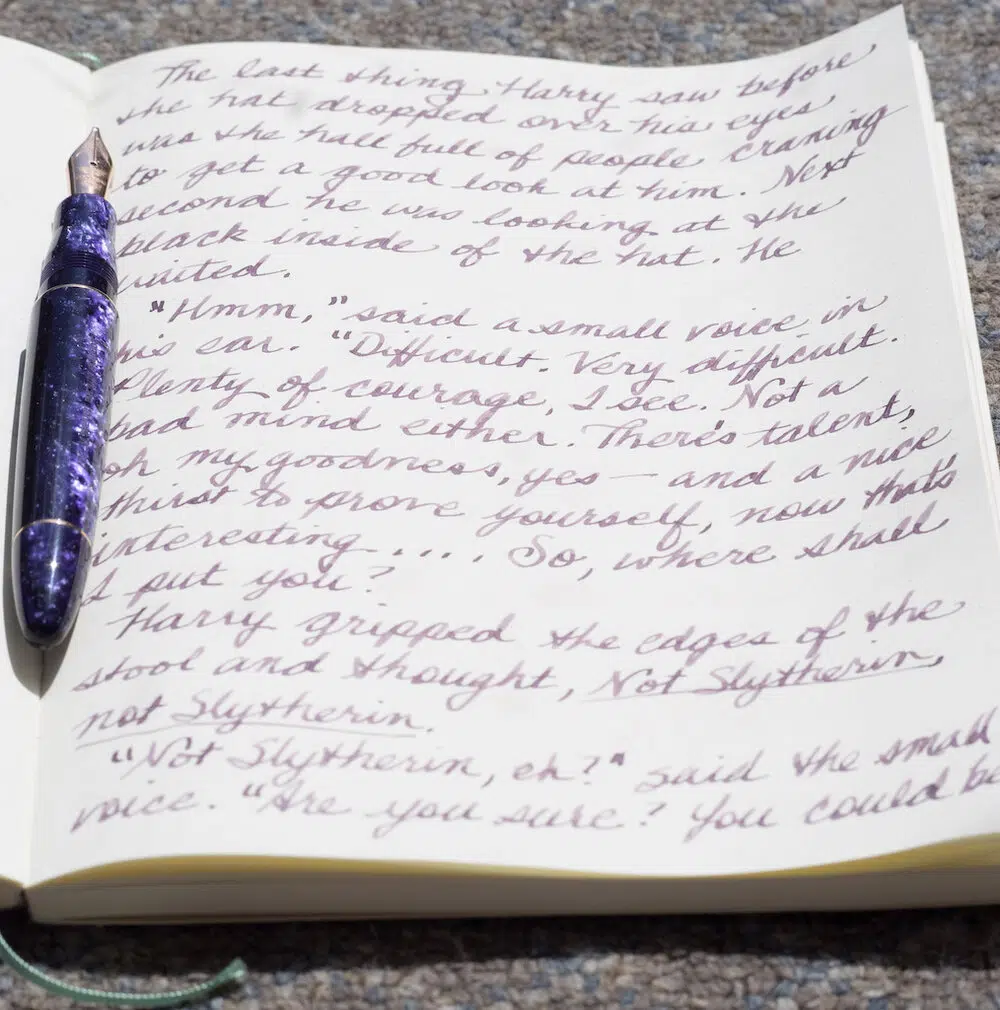 The last thing Harry saw before
the hat dropped over his eyes
was the hall full of people craning
to get a good look at him. Next
second he was looking at the
black inside of the hat. He
waited.
"Hmm," said a small voice in
his ear. "Difficult. Very difficult.
Plenty of courage, I see. Not a
bad mind either. There's talent,
oh my goodness, yes — and a nice
thirst to prove yourself, now that's
interesting .... So, where shall
I put you?
Harry gripped the edges of the
stool and thought, Not Slytherin,
not Slytherin.
"Not Slytherin, eh?" said the small
voice. "Are you sure? You could be